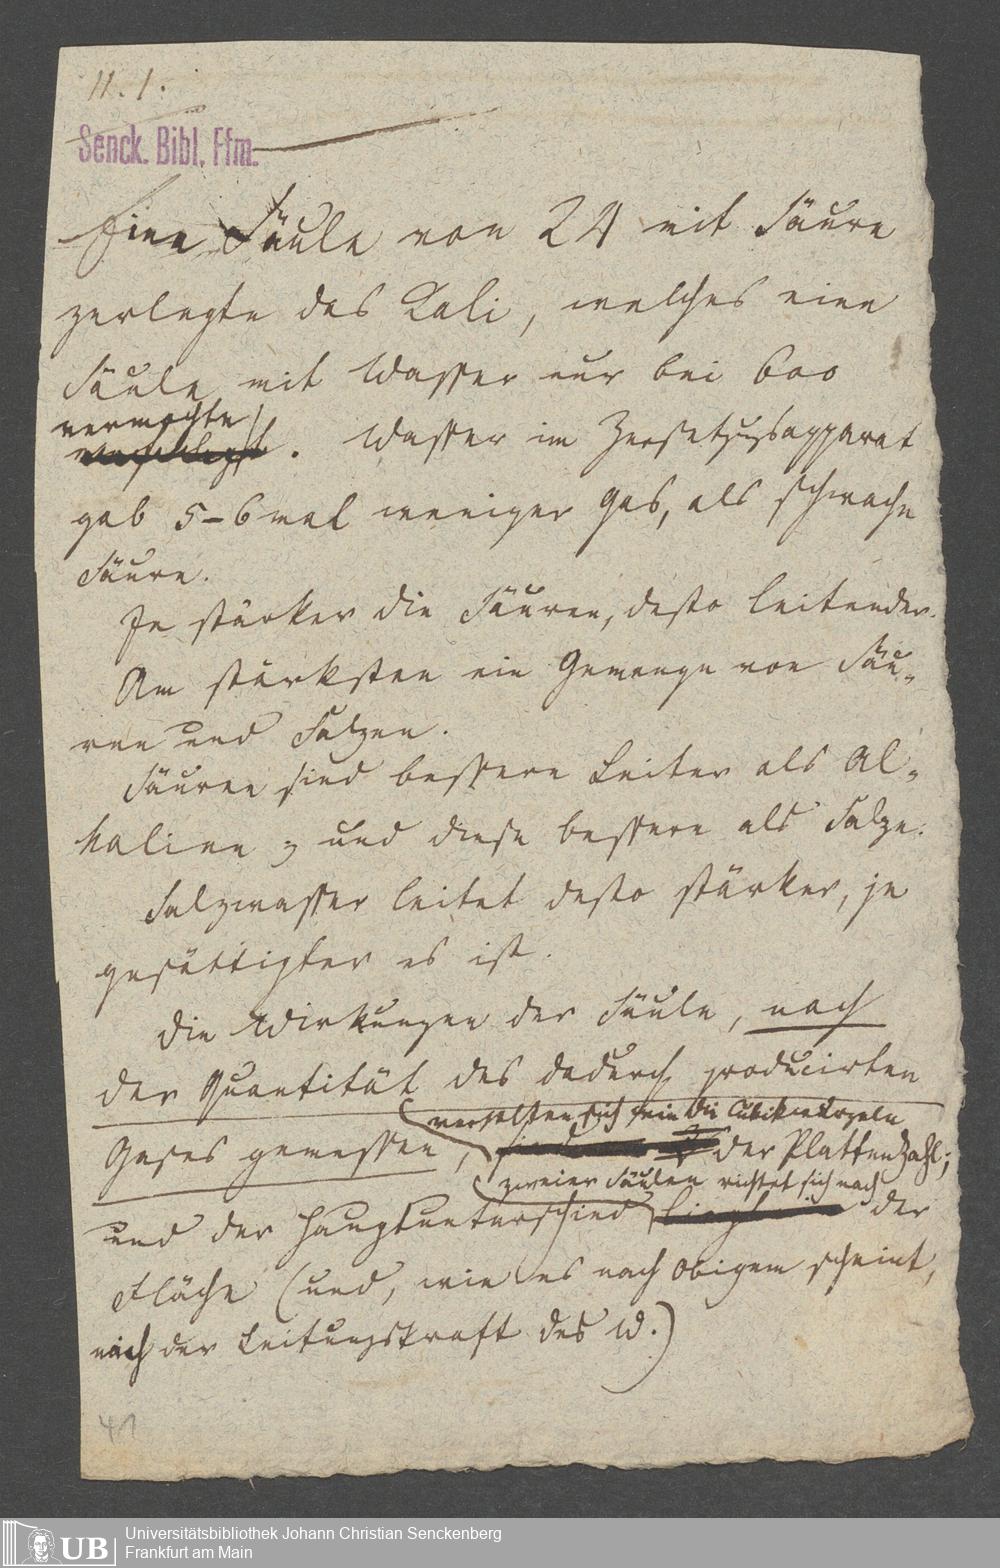 11. 1.
Senck. Bibl. Ffm.
Eine Säule von 24 mit Säure
zerlegte das Kali, welches eine
Säule mit Wasser nur bei 600
vermochte
. Wasser im Zersetzungsapparat
gab 5-6 mal weniger Gas, als schwache
Säure.
Je stärker die Säuren, desto leitender.
Am stärksten ein Gemenge von Säu„
ren und Salzen.
Säuren sind bessere Leiter als Al„
kalien; und diese bessere als Salze.
Salzwasser leitet desto stärker, je
gesättigter es ist.
Die Wirkungen der Säule, nach
der Quantität des dadurch producirten
verhalten sich wie die Cubikwurzeln
Gases gemessen, der Plattenzahl;
zweier Säulen richtet sich nach
und der Hauptunterschied der
Fläche (und, wie es nach Obigem scheint,
nach der Leitungskraft des W.)
41
UB
Universitätsbibliothek Johann Christian Senckenberg
Frankfurt am Main